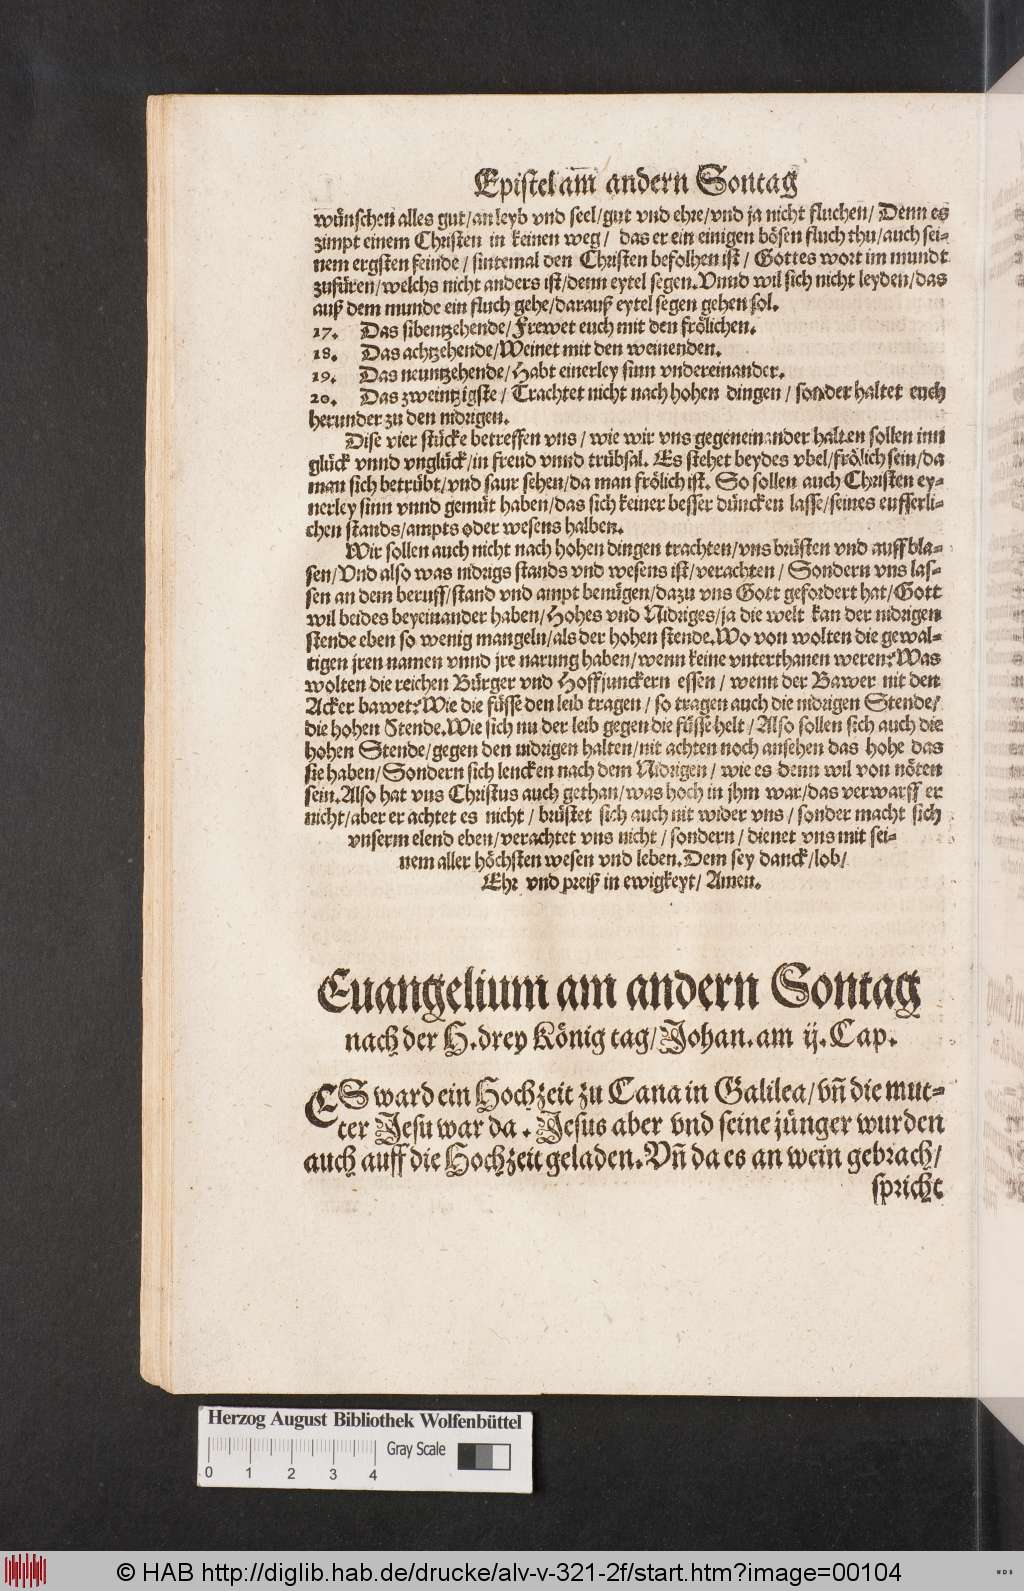 Epistel am̅ andern Sontag
wünschen alles gut/an leyb vnd seel/gut vnd ehre/vnd ja nicht fluchen/ Denn es
zimpt einem Christen in keinen weg/ das er ein einigen bösen fluch thu/auch sei-
nem ergsten feinde/sintemal den Christen befolhen ist/ Gottes wort im mundt
zufüren/welchs nicht anders ist/denn eytel segen.Vnnd wil sich nicht leyden/das
auß dem munde ein fluch gehe/darauß eytel segen gehen sol.
17. Das sibentzehende/Frewet euch mit den frölichen.
18. Das achtzehende/Weinet mit den weinenden.
19. Das neuntzehende/Habt einerley sinn vndereinander.
20. Das zweintzigste/ Trachtet nicht nach hohen dingen/sonder haltet euch
herunder zu den nidrigen.
Dise vier stücke betreffen vns/ wie wir vns gegeneinander halten sollen inn
glück vnnd vnglück/in freud vnnd trübsal. Es stehet beydes vbel/frölich sein/da
man sich betrübt/vnd saur sehen/da man frölich ist. So sollen auch Christen ey-
nerley sinn vnnd gemüt haben/das sich keiner besser düncken lasse/seines eusserli-
chen stands/ampts oder wesens halben.
Wir sollen auch nicht nach hohen dingen trachten/vns brüsten vnd auffbla-
sen/Vnd also was nidrigs stands vnd wesens ist/verachten/Sondern vns las-
sen an dem beruff/stand vnd ampt benügen/dazu vns Gott gefordert hat/Gott
wil beides beyeinander haben/Hohes vnd Nidriges/ja die welt kan der nidrigen
stende eben so wenig mangeln/als der hohen stende.Wo von wolten die gewal-
tigen jren namen vnnd jre narung haben/wenn keine vnterthanen weren?Was
wolten die reichen Bürger vnd Hoffjunckern essen/ wenn der Bawer nit den
Acker bawet?Wie die füsse den leib tragen/ so tragen auch die nidrigen Stende/
die hohen Stende.Wie sich nu der leib gegen die füsse helt/Also sollen sich auch die
hohen Stende/gegen den nidrigen halten/nit achten noch ansehen das hohe das
sie haben/Sondern sich lencken nach dem Nidrigen/ wie es denn wil von nöten
sein.Also hat vns Christus auch gethan/was hoch in jhm war/das verwarff er
nicht/aber er achtet es nicht/ brüstet sich auch nit wider vns/sonder macht sich
vnserm elend eben/verachtet vns nicht/sondern/dienet vns mit sei-
nem aller höchsten wesen vnd leben.Dem sey danck/lob/
Ehr vnd preiß in ewigkeyt/ Amen.
Euangelium am andern Sontag
nach der H.drey König tag/Johan.am ij.Cap.
ES ward ein Hochzeit zu Cana in Galilea/vn̅ die mut-
ter Jesu war da. Jesus aber vnd seine jünger wurden
auch auff die Hochzeit geladen.Vn̅ da es an wein gebrach/
spricht
Herzog August Bibliothek Wolfenbüttel
Gray Scale
0 1 2 3 4
© HAB http://diglib.hab.de/drucke/alv-v-321-2f/start.htm?image=00104